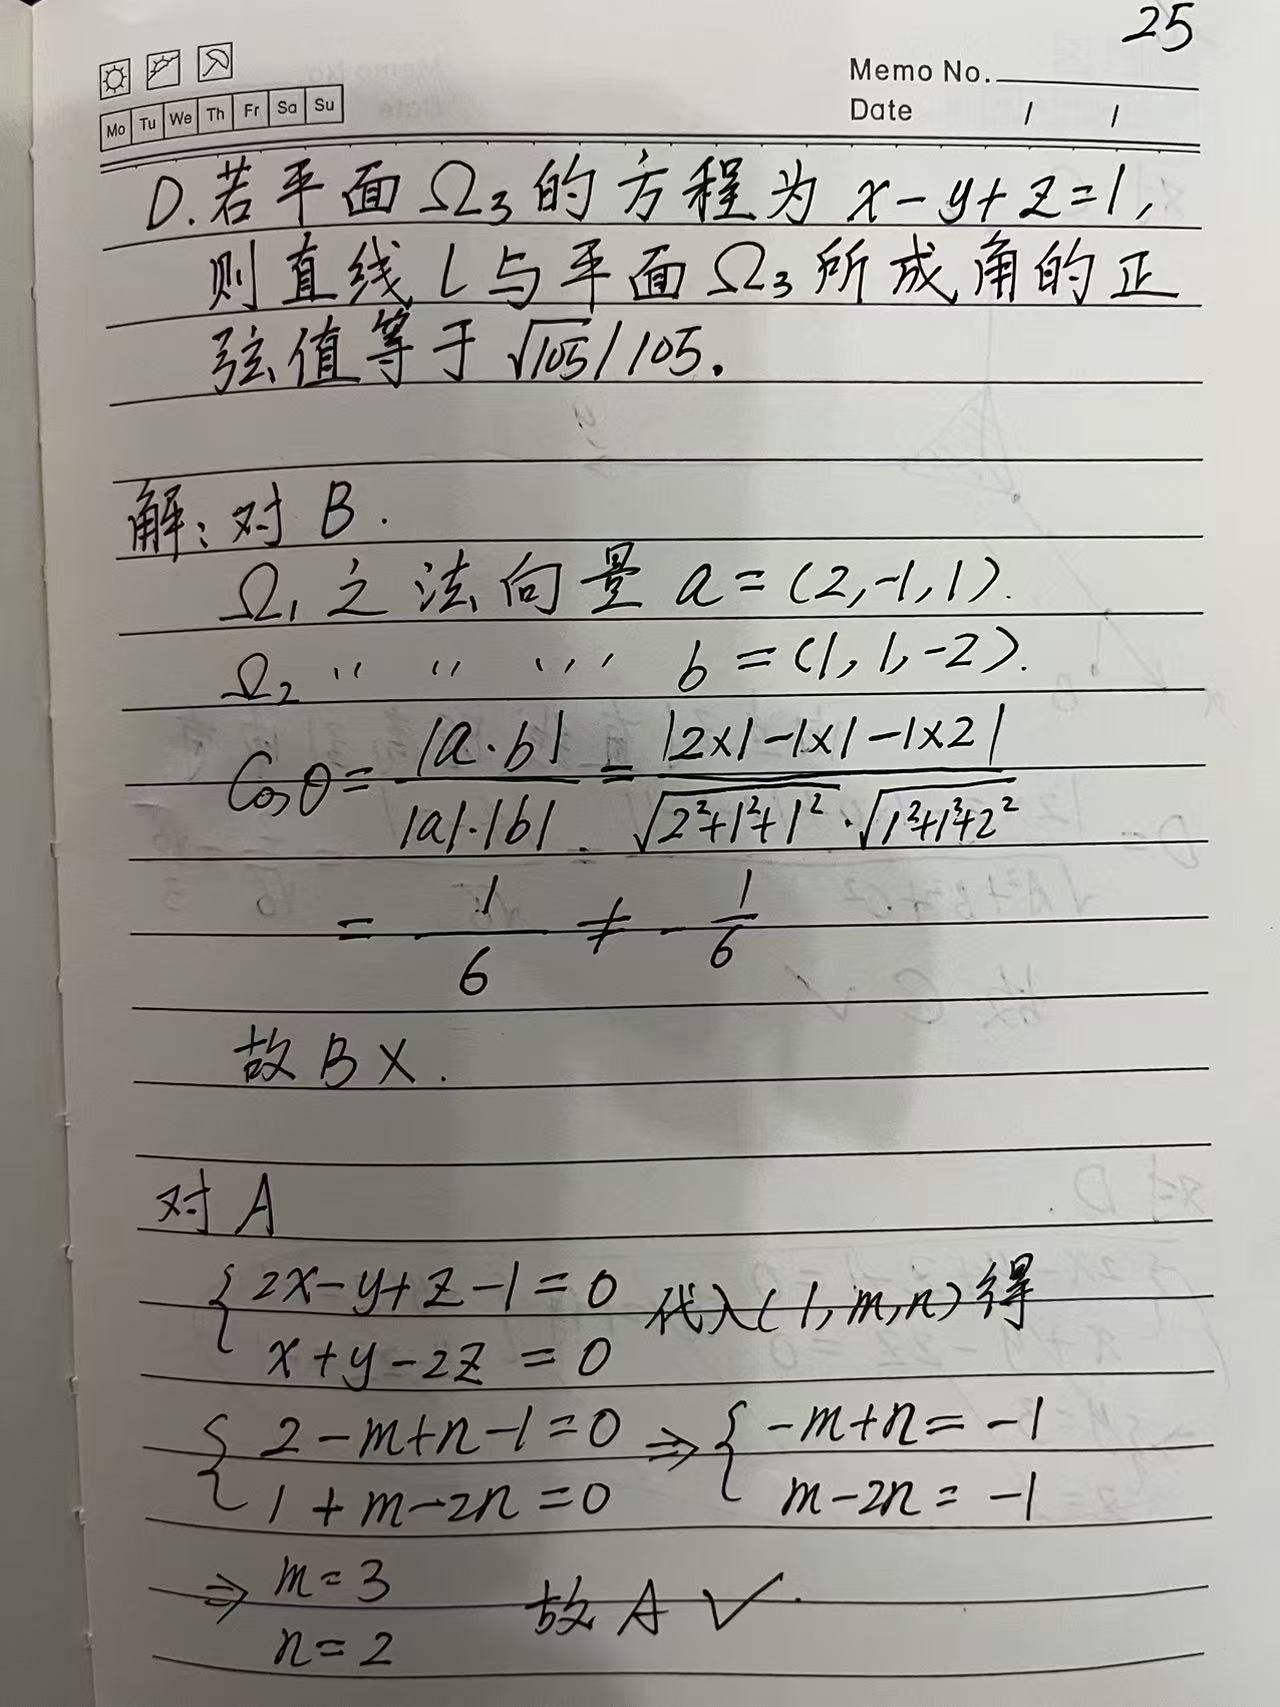 25
Memo No.
Mo Tu We Th Fr Sa Su
Date / /
D.若平面Ω₃的方程为 x-y+z=1,
则直线l与平面Ω₃所成角的正
弦值等于√105/105.
解:对B.
Ω₁之法向量 a=(2,-1,1).
Ω₂ 〃 〃 〃 b=(1,1,-2).
Cosθ= |a·b| / |a|·|b| = |2×1-1×1-1×2| / √(2²+1²+1²)·√(1²+1²+2²)
= 1/6 ≠ -1/6
故B×.
对A
{2x-y+z-1=0 代入(1,m,n)得
x+y-2z=0
{2-m+n-1=0 ⇒ {-m+n=-1
1+m-2n=0 m-2n=-1
⇒ m=3
n=2 故A✓.